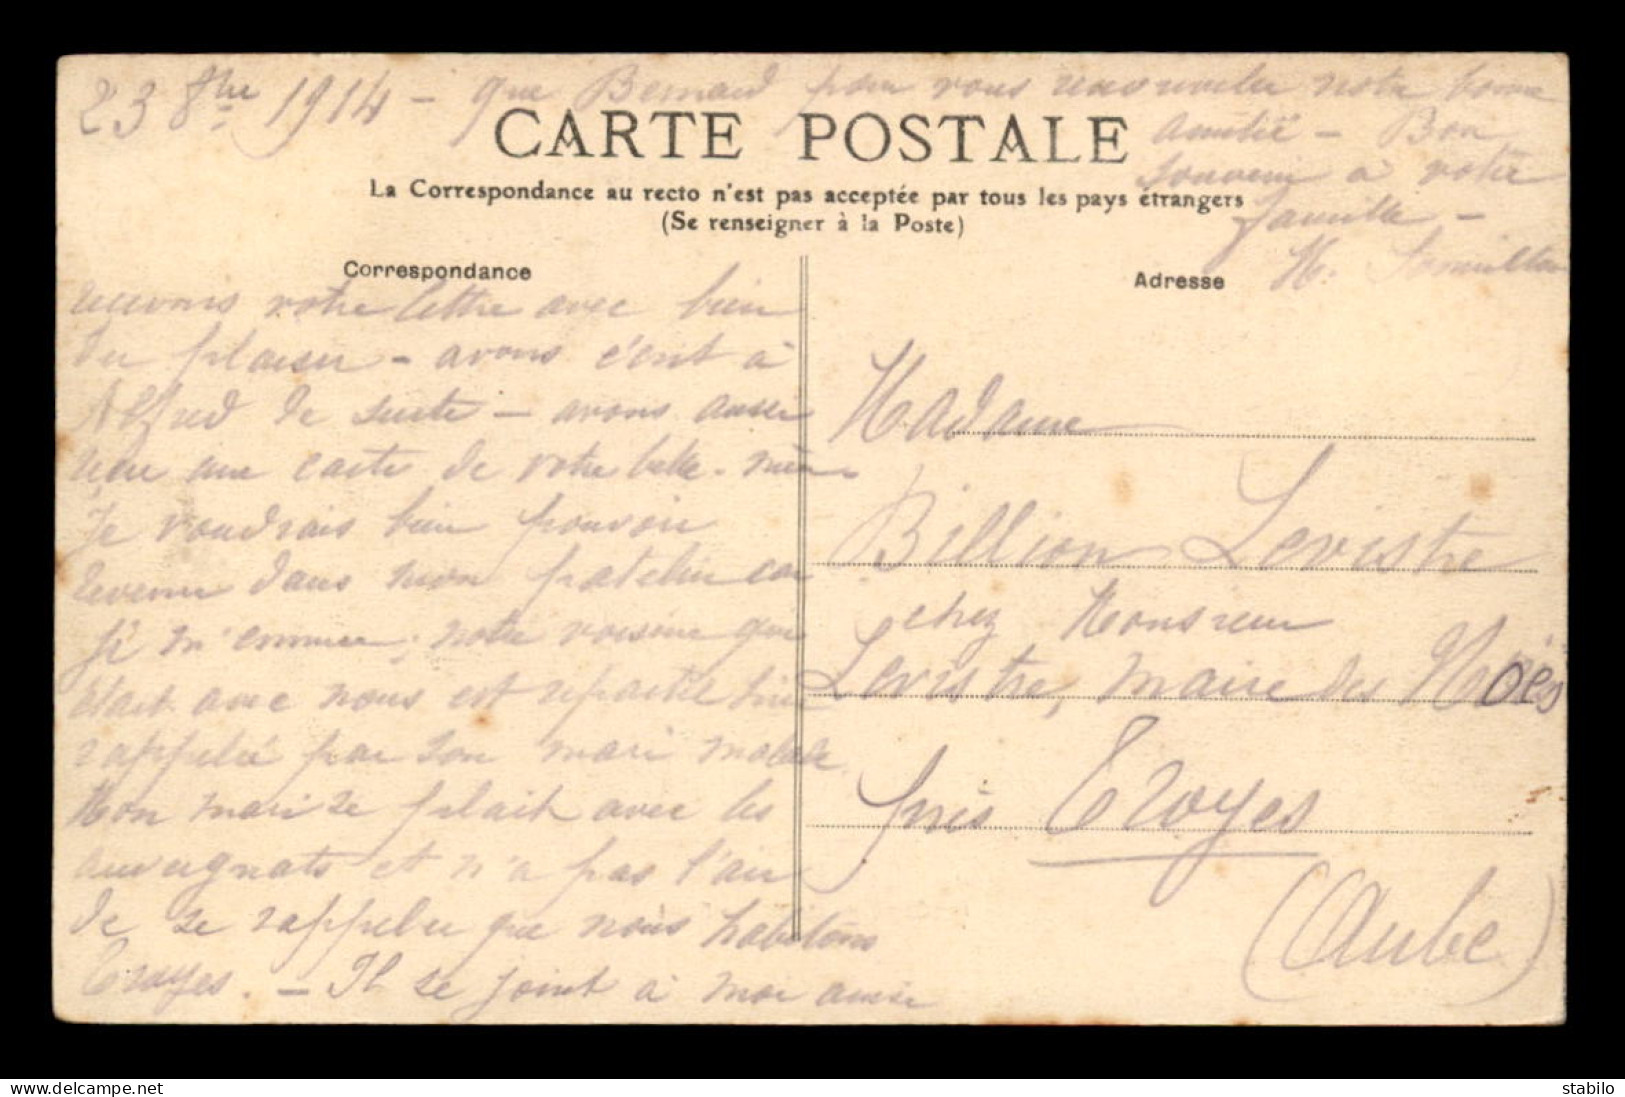 23 8bre 1914 - que Bernard pour vous renouveler notre bonne
amitié - Bon
souvenir à votre
famille -
H.
CARTE POSTALE
La Correspondance au recto n'est pas acceptée par tous les pays étrangers
(Se renseigner à la Poste)
Correspondance
recevons votre lettre avec bien
du plaisir - avons écrit à
Alfred de suite - avons aussi
reçu une carte de votre belle-mère
Je voudrais bien pouvoir
revenir dans mon patelin car
je m'ennuie, notre voisine qui
était avec nous est repartie hier
rappelée par son mari malade
Mon mari se plait avec les
auvergnats et n'a pas l'air
de se rappeler que nous habitons
Troyes. - Il se joint à moi ainsi
Adresse
Madame
Billion Levistre
chez Monsieur
Levistre, maire des Noës
près Troyes
(Aube)
stabilo
http://www.delcampe.net